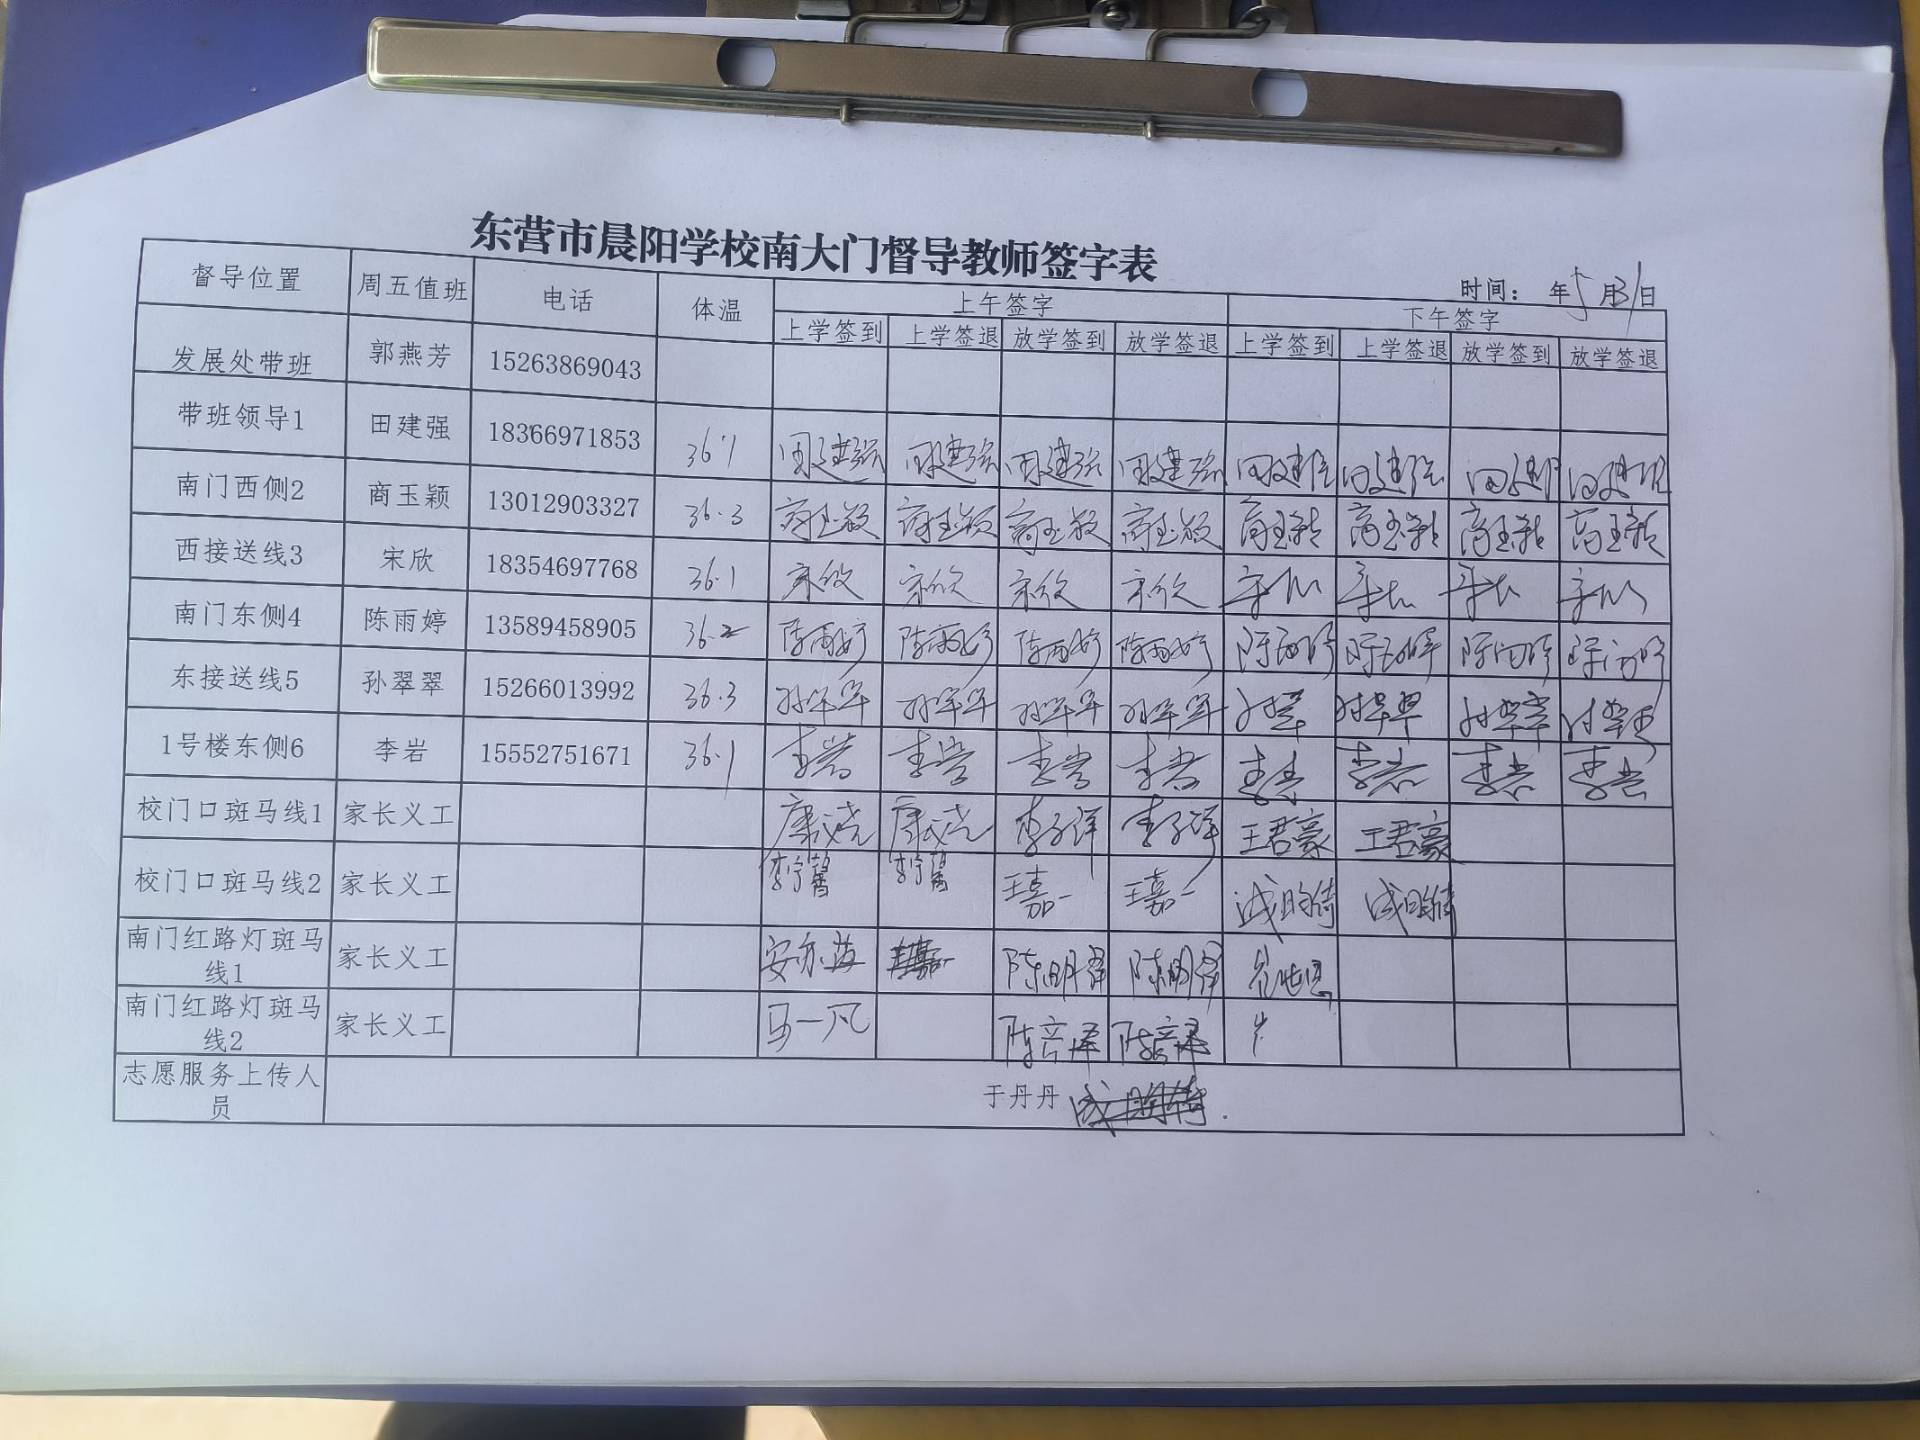 东营市晨阳学校南大门督导教师签字表
时间： 年5月31日
督导位置 周五值班 电话 体温 上午签字 下午签字
上学签到 上学签退 放学签到 放学签退 上学签到 上学签退 放学签到 放学签退
发展处带班 郭燕芳 15263869043
带班领导1 田建强 18366971853 36.1 田建强 田建强 田建强 田建强 田建强 田建强 田建强 田建强
南门西侧2 商玉颖 13012903327 36.3 商玉颖 商玉颖 商玉颖 商玉颖 商玉颖 商玉颖 商玉颖 商玉颖
西接送线3 宋欣 18354697768 36.1 宋欣 宋欣 宋欣 宋欣 宋欣 宋欣 宋欣 宋欣
南门东侧4 陈雨婷 13589458905 36.2 陈雨婷 陈雨婷 陈雨婷 陈雨婷 陈雨婷 陈雨婷 陈雨婷 陈雨婷
东接送线5 孙翠翠 15266013992 36.3 孙翠翠 孙翠翠 孙翠翠 孙翠翠 孙翠翠 孙翠翠 孙翠翠 孙翠翠
1号楼东侧6 李岩 15552751671 36.1 李岩 李岩 李岩 李岩 李岩 李岩 李岩 李岩
校门口斑马线1 家长义工 李子洋 李子洋 王君豪 王君豪
校门口斑马线2 家长义工 王嘉一 王嘉一
南门红路灯斑马线1 家长义工 陈明泽 陈明泽
南门红路灯斑马线2 家长义工 马一凡 陈奕泽 陈奕泽
志愿服务上传人员 于丹丹